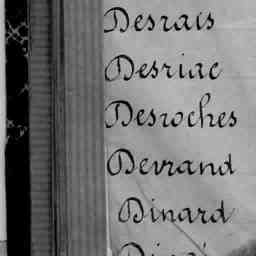 Desrais
Desriac
Desroches
Devrand
Dinard